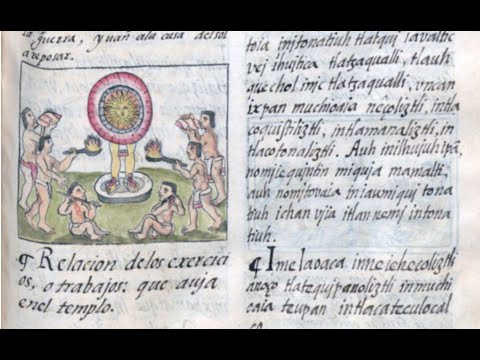 la guerra, yuan ala casa del sol
areposar.
¶ Relacion delos exercici
os, o trabajos: que auja
enel templo.
toia injtonatiuh tlatqui lavaltic
vej ihujtica tlatzaqualli, tlauh
quechol injc tlatzaqualli, vncan
ixpan muchioaia neçoliztli, intla
intlamanaliztli, in
tlacotonaliztli. Auh inilhujuh ipã,
nomjequintin mjquja mamalti,
auh nomjtovaia iniaumjqui tona
tiuh ichan vjia itlan nemj intona
tiuh.
¶ Imelaoaca inneiehecoliztli
anoço tlatequipanoliztli inmuchi
oaia teupan intlacateculocal